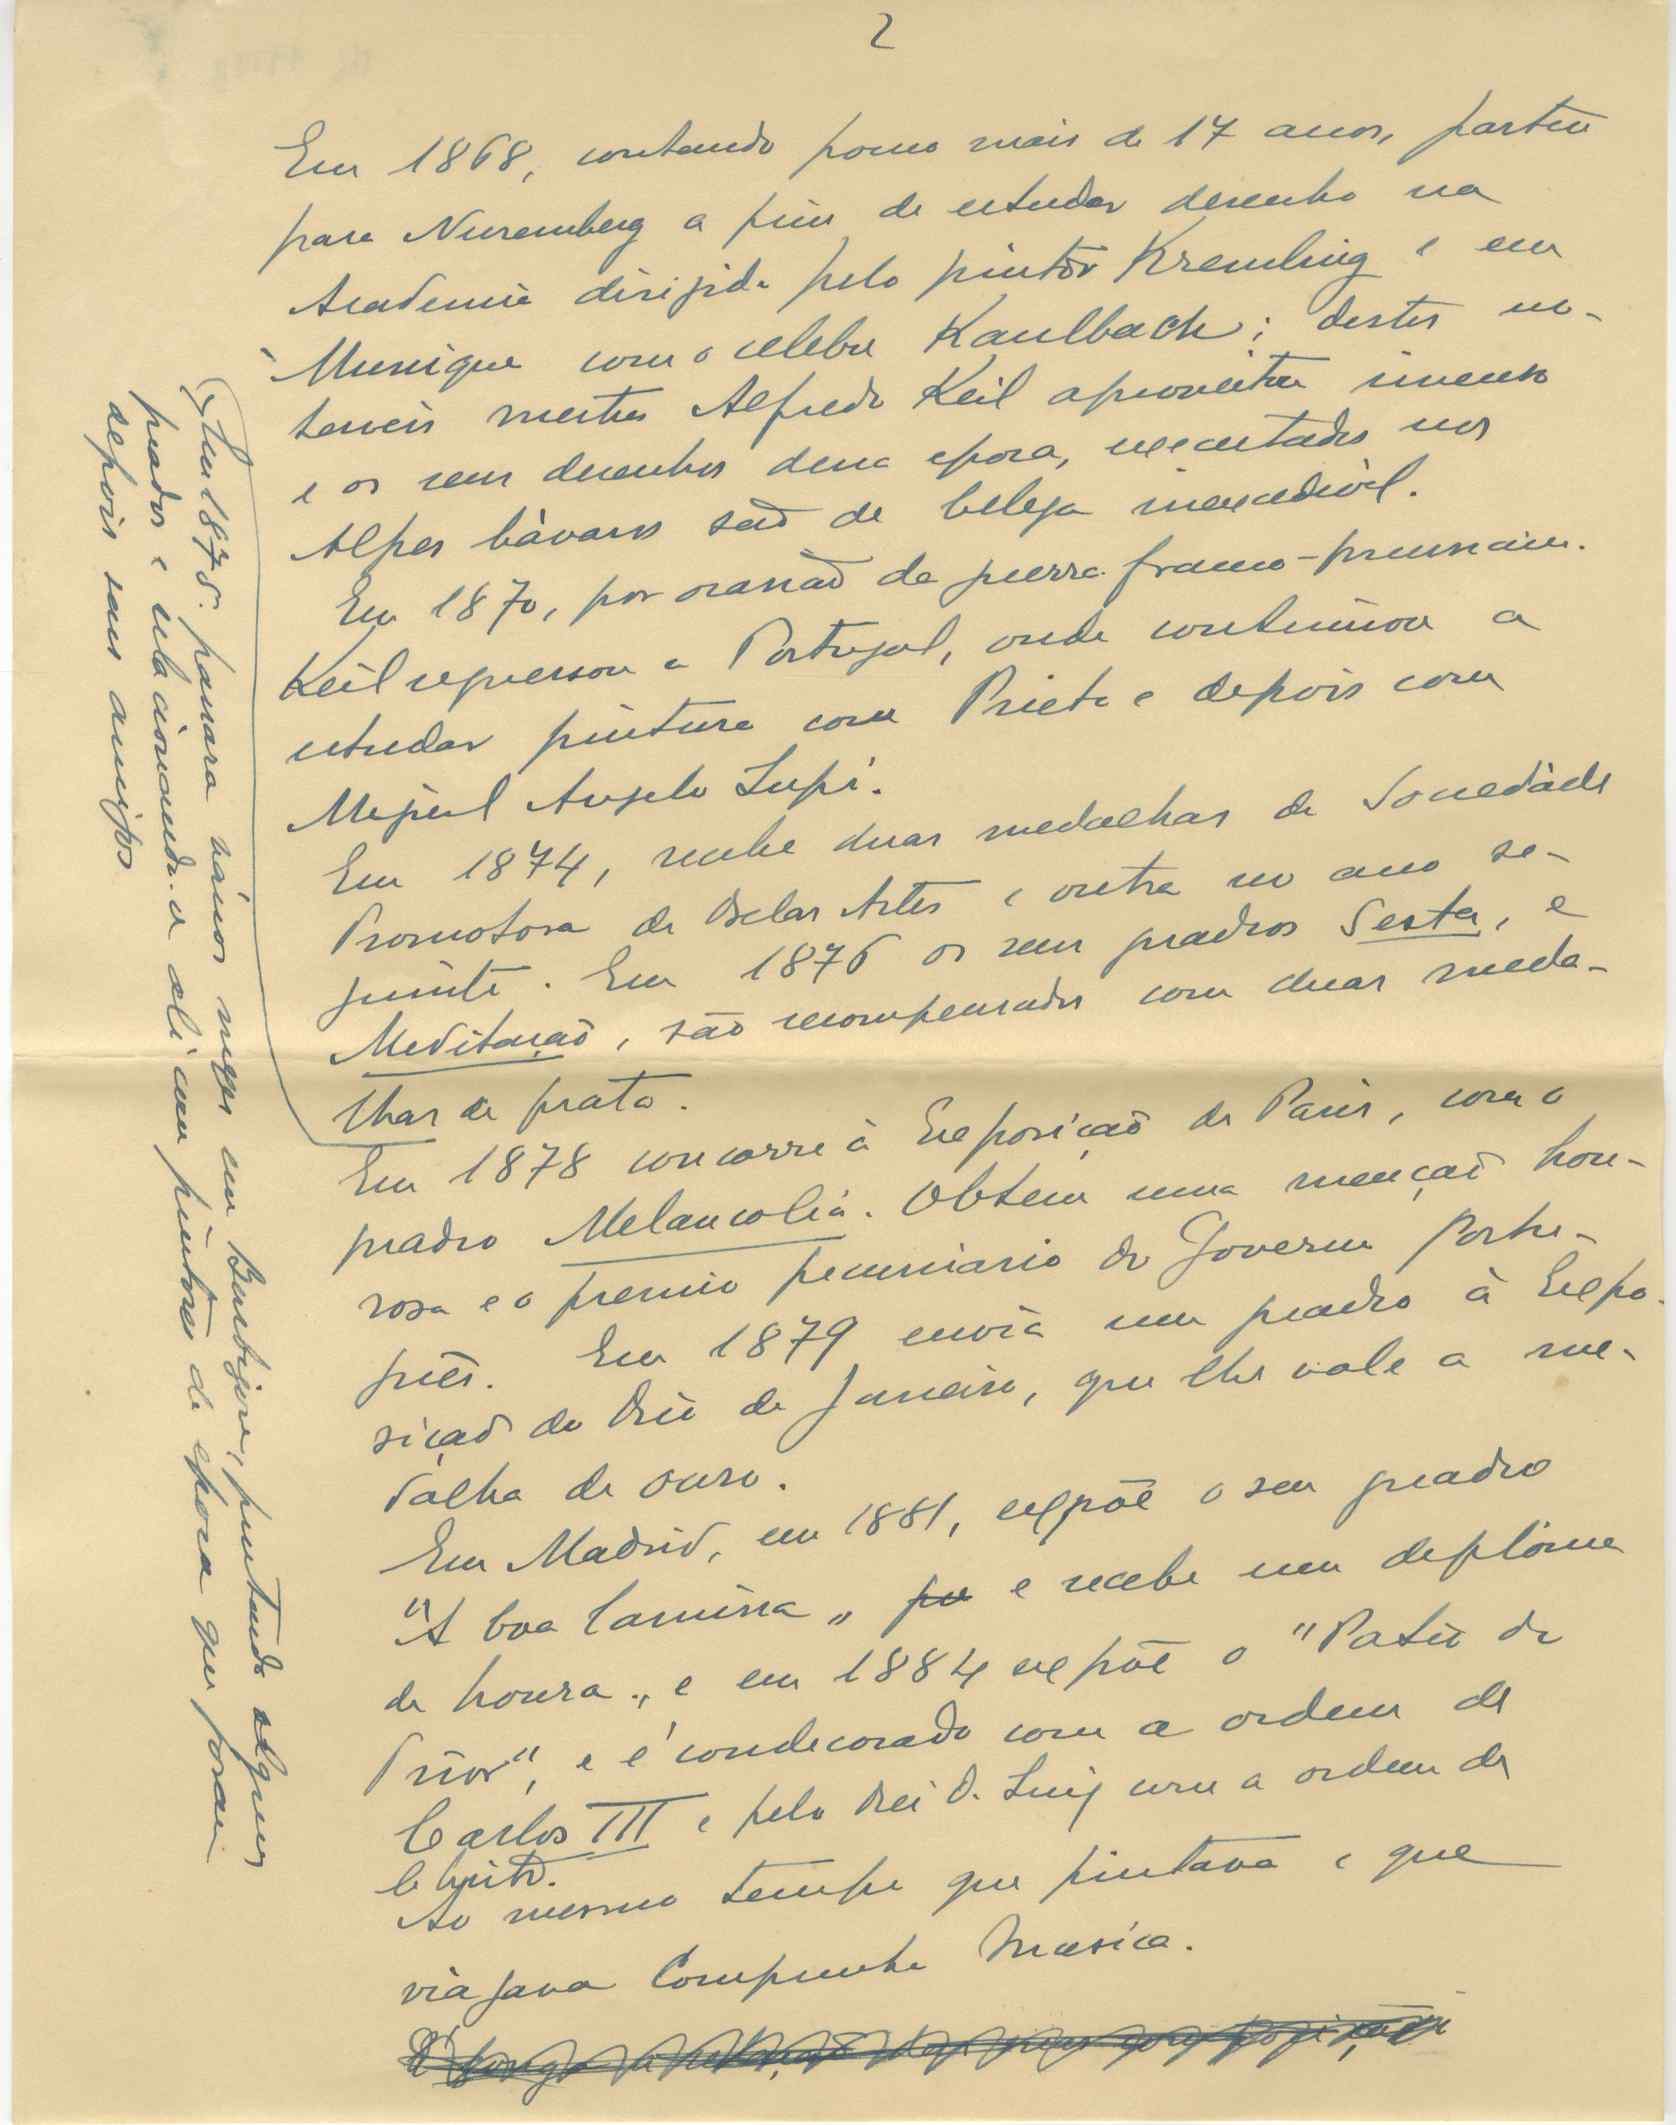 2
Em 1868, contando pouco mais de 17 anos, partiu
para Nuremberg a fim de estudar desenho na
Academia dirigida pelo pintor Kremling e em
Munique com o celebre Kaulbach; destes no-
taveis mestres Alfredo Keil aproveitou imenso
e os seus desenhos dessa epoca, executados nos
Alpes bávaros são de beleza inexcedivel.
Em 1870, por ocasião da guerra franco-prussiana.
Keil regressou a Portugal, onde continuou a
estudar pintura com Prieto e depois com
Miguel Angelo Lupi.
Em 1874, recebe duas medalhas da Sociedade
Promotora de Belas Artes e outra no ano se-
guinte. Em 1876 os seus quadros Sesta, e
Meditação, são recompensados com duas meda-
lhas de prata.
Em 1878 concorre à Exposição de Paris, com o
quadro Melancolia. Obtem uma menção hon-
rosa e o premio pecuniario do Governo Portu-
guês. Em 1879 envia um quadro à Expo-
sição do Rio de Janeiro, que lhe vale a me-
dalha de ouro.
Em Madrid, em 1881, expõe o seu quadro
"A boa Camisa" e recebe um diplôma
de honra., e em 1884 expõe o "Patio do
Prior", e é condecorado com a ordem de
Carlos III e pelo Rei D. Luiz com a ordem de
Cristo.
Ao mesmo tempo que pintava e que
viajava Compunha Musica.
(Em 1875 passara vários meses em Barbizon, pintando alguns
quadros e relacionando-se ali com pintores da epoca que foram
depois seus amigos